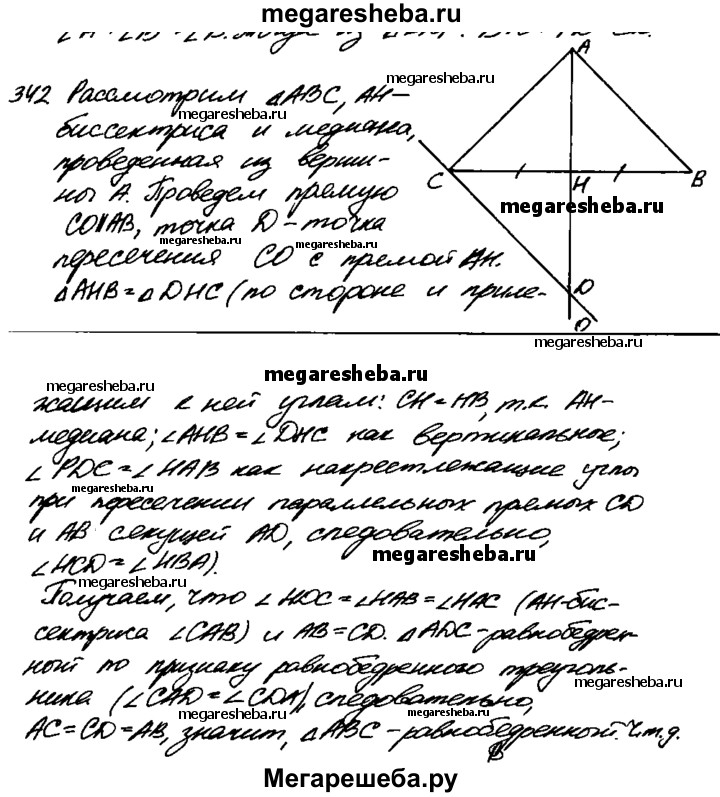 megaresheba.ru
342 Рассмотрим △ABC, AH-
megaresheba.ru
megaresheba.ru
биссектриса и медиана,
проведенная из верши-
megaresheba.ru
ны A. Проведем прямую
CO∥AB, точка D - точка
megaresheba.ru
megaresheba.ru
пересечения CO с прямой AH.
△AHB = △DHC (по стороне и приле-
A
C
H
B
megaresheba.ru
D
O
megaresheba.ru
megaresheba.ru
megaresheba.ru
жащим к ней углам: CH = HB, т.к. AH-
медиана; ∠AHB = ∠DHC как вертикальные;
∠PDC = ∠HAB как накрестлежащие углы
megaresheba.ru
при пересечении параллельных прямых CD
и AB секущей AD, следовательно,
megaresheba.ru
∠HCD = ∠HBA).
megaresheba.ru
Получаем, что ∠HDC = ∠HAB = ∠HAC (AH-бис-
сектриса ∠CAB) и AB = CD. △ADC - равнобедрен-
ный по признаку равнобедренного треуголь-
megaresheba.ru
ника (∠CAD = ∠CDA), следовательно,
megaresheba.ru
megaresheba.ru
AC = CD = AB, значит, △ABC - равнобедренный. Ч.т.д.
Мегарешеба.ру